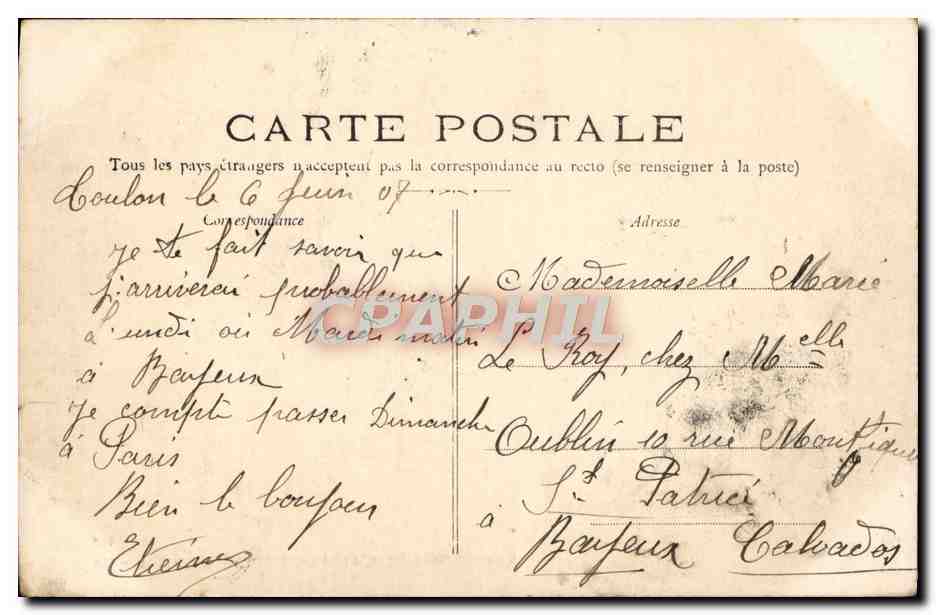 CARTE POSTALE
Tous les pays étrangers n'acceptent pas la correspondance au recto (se renseigner à la poste)
Toulon le 6 07
Correspondance
je te fait savoir que
j'arriverai probablement
Lundi ou Mardi matin
à Bayeux
je compte passer Dimanche
à Paris
Bien le bonjour
Etienne
Adresse
Mademoiselle Marie
Le Roy, chez Melle
Oublin 10 rue
St Patrice
à Bayeux Calvados
CPAPHIL